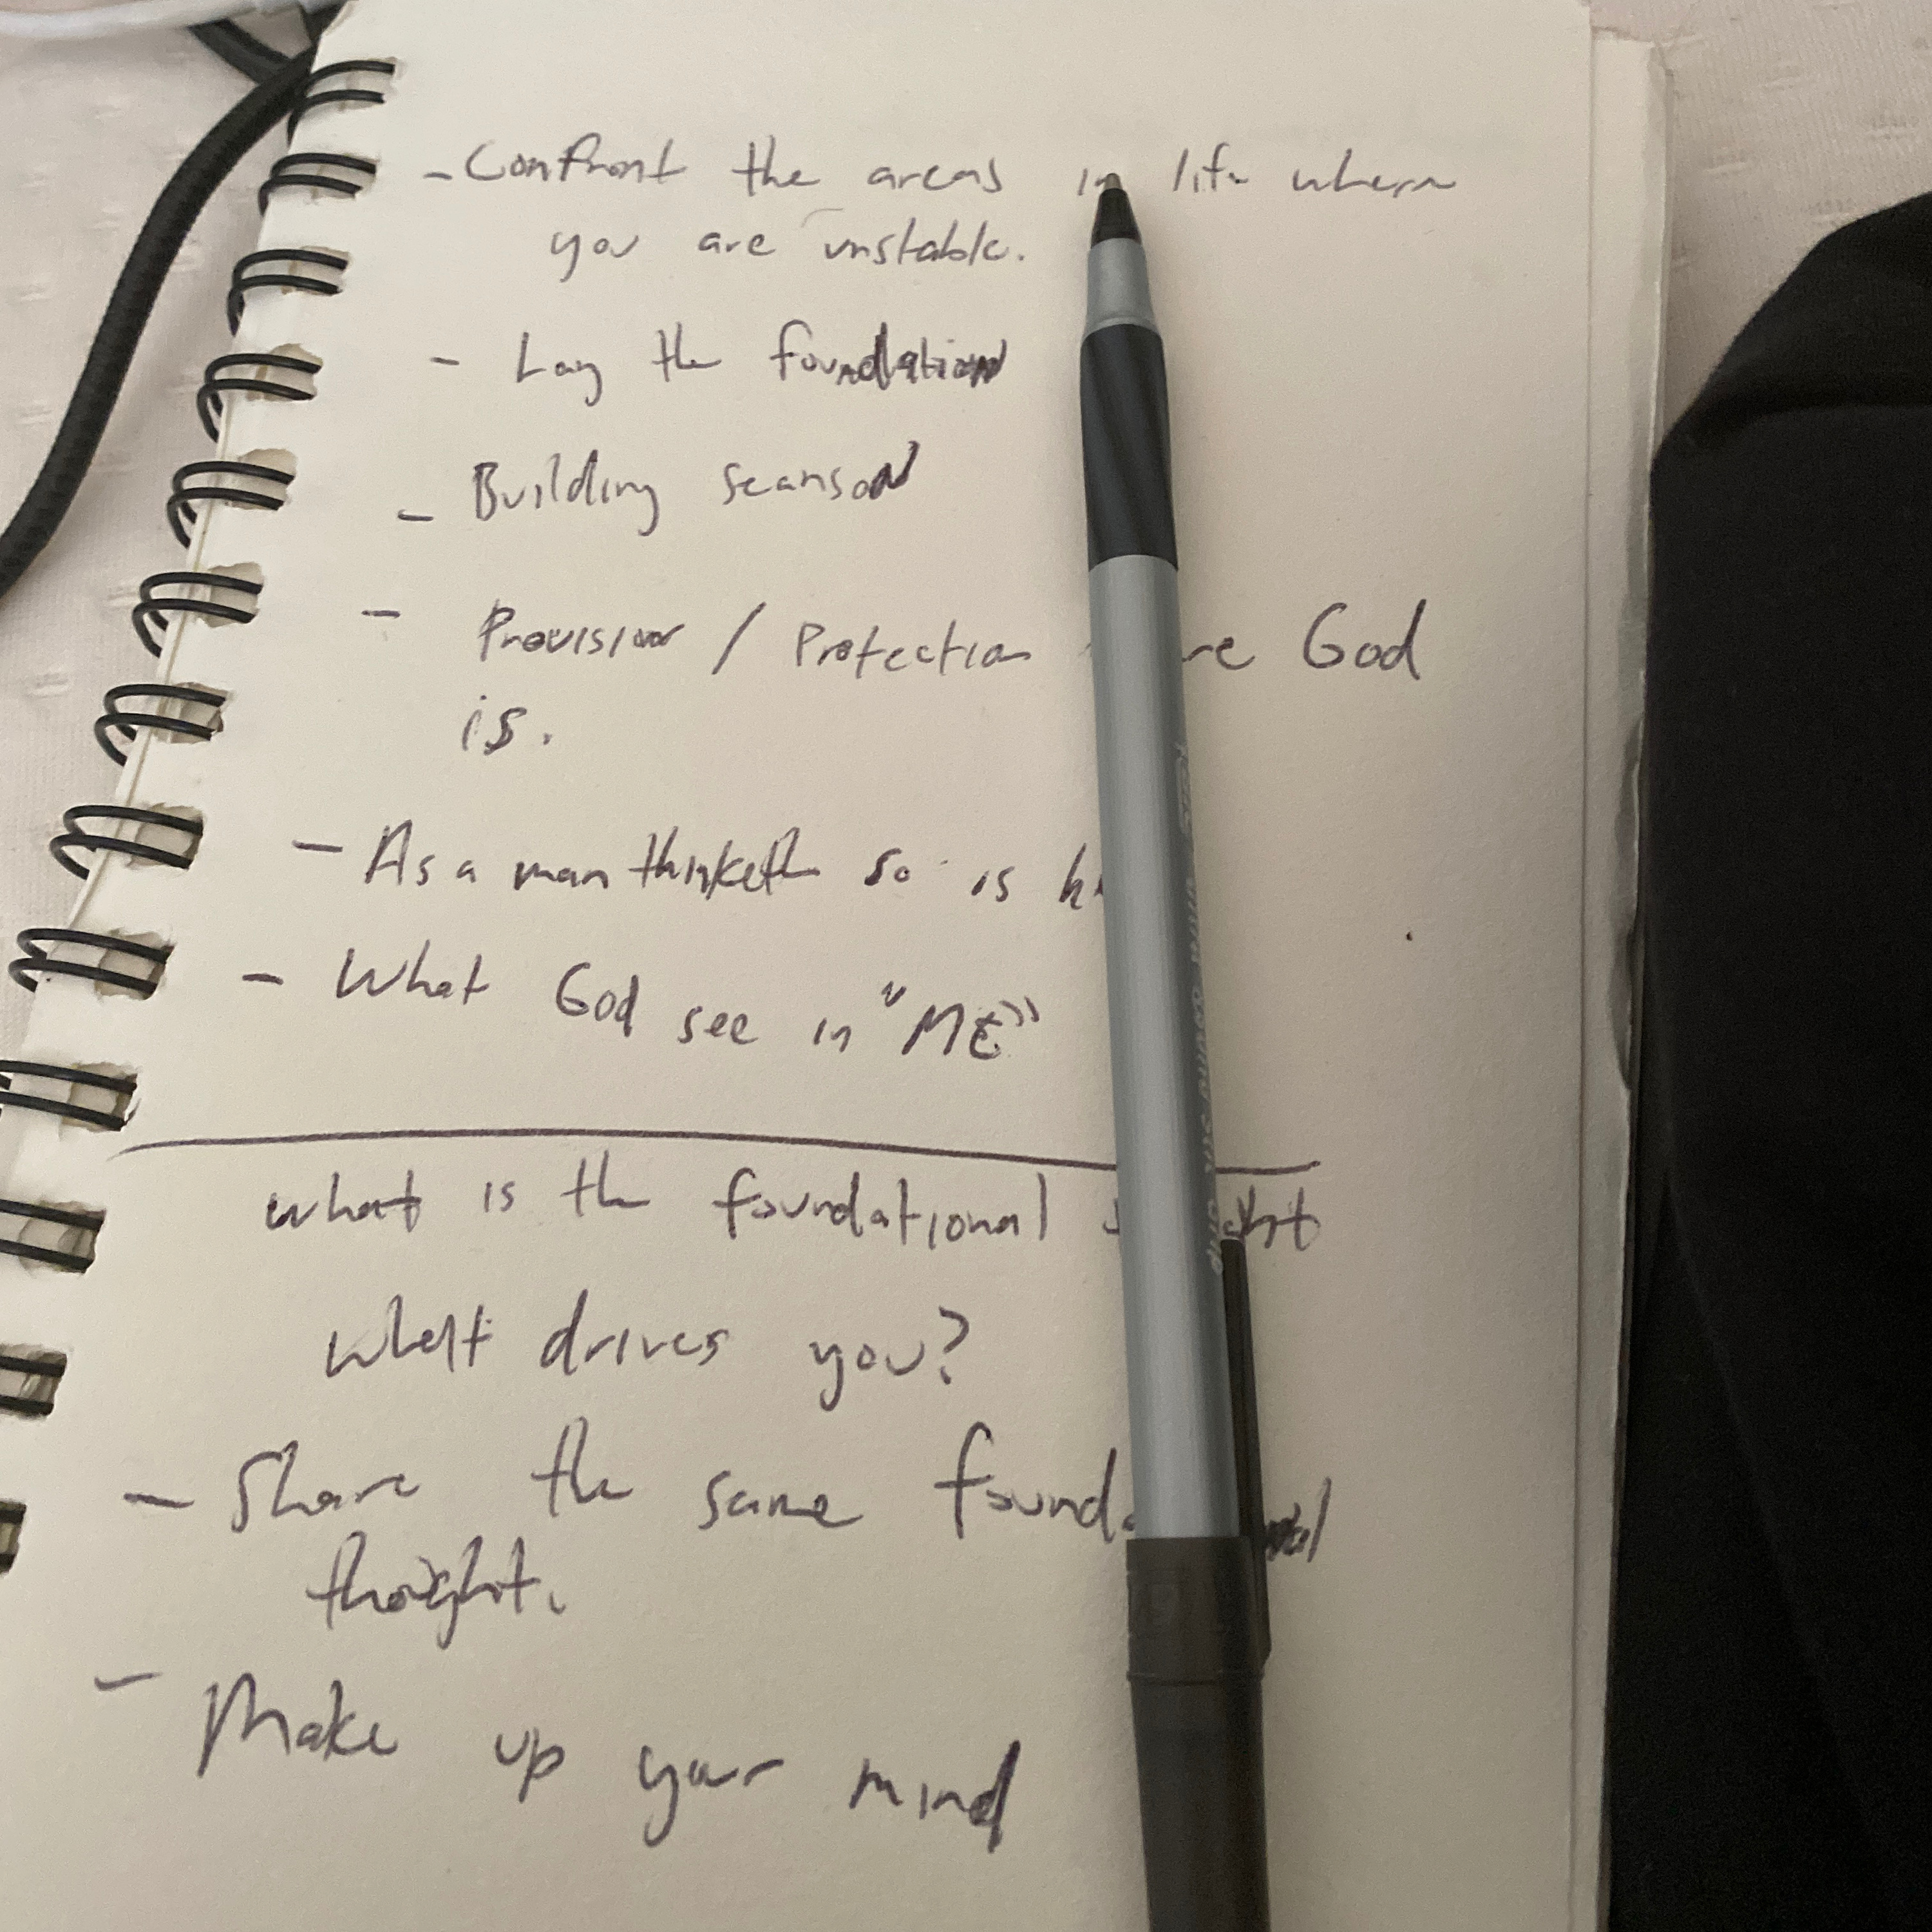 - Confront the areas in life where
you are unstable.
- Lay the foundation
- Building seanson
- Provision / Protection are God
is.
- As a man thinketh so is he
- What God see in "ME"
what is the foundational
what drives you?
- Share the same foundational
thought.
- Make up your mind